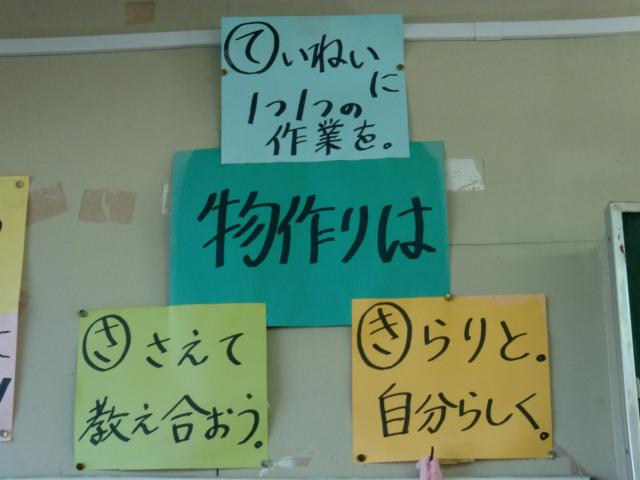 ていねいに
1つ1つの
作業を。
物作りは
ささえて
教え合おう。
きらりと。
自分らしく。